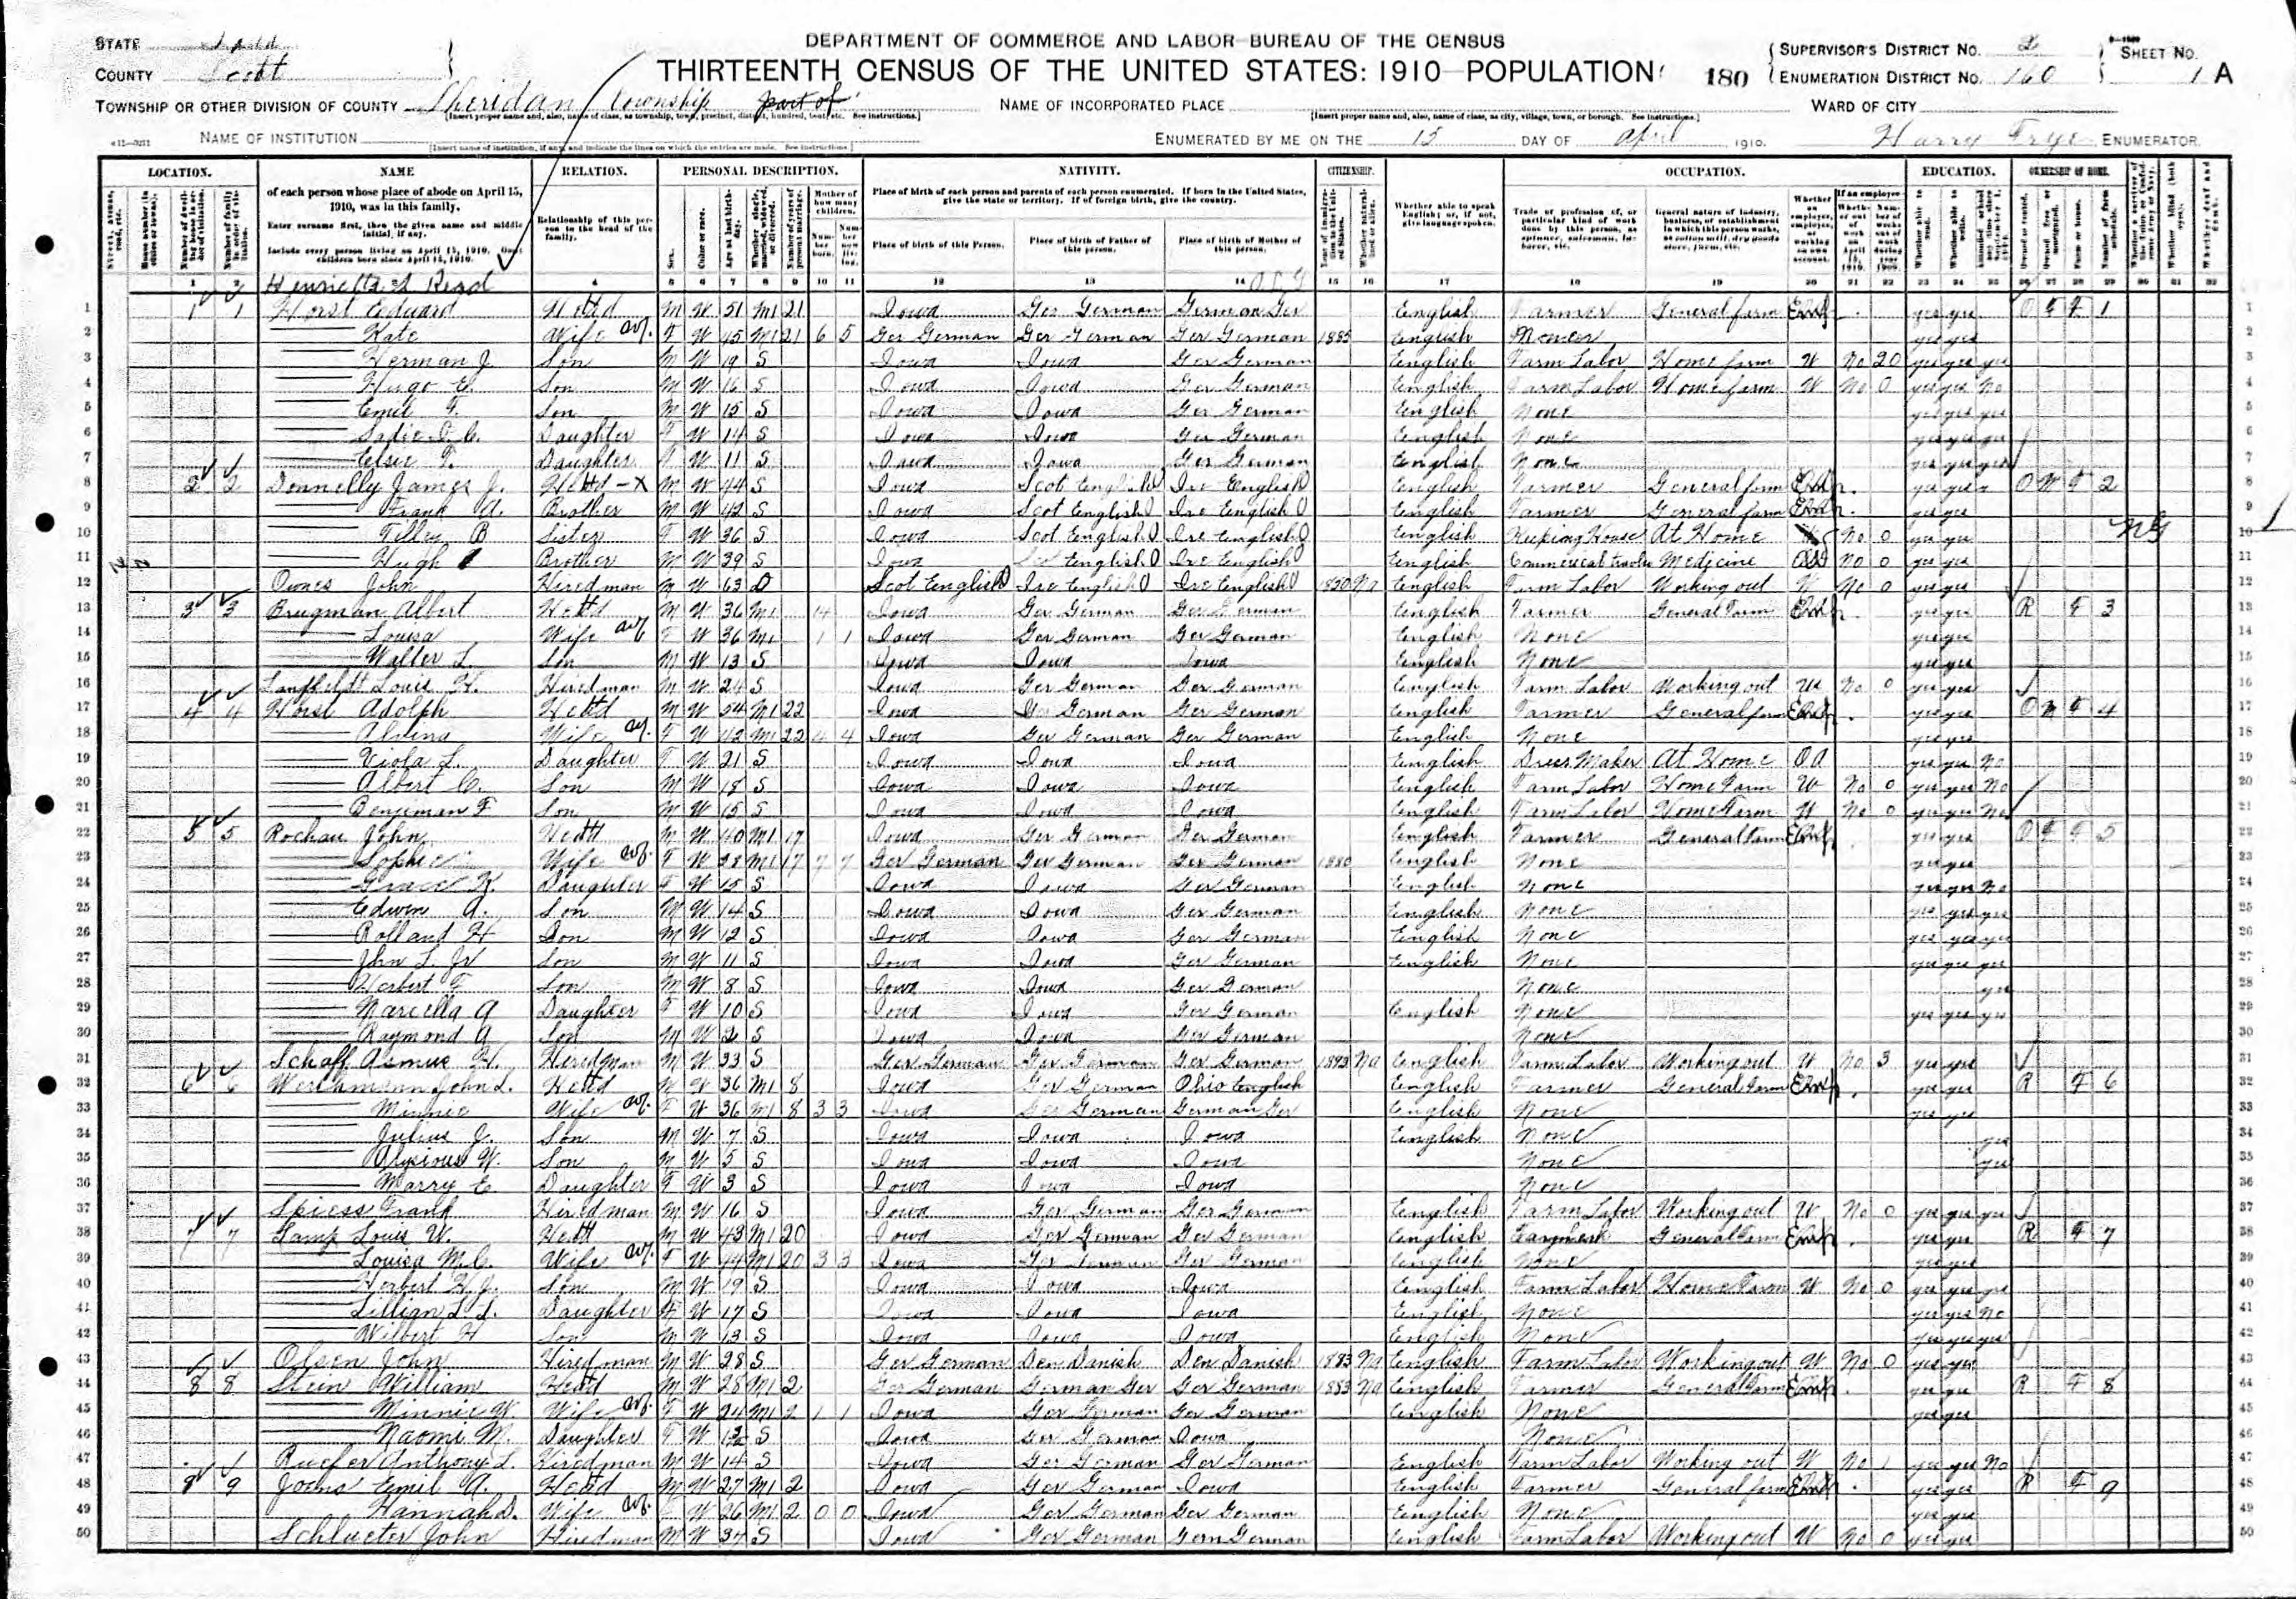 DEPARTMENT OF COMMERCE AND LABOR—BUREAU OF THE CENSUS
THIRTEENTH CENSUS OF THE UNITED STATES: 1910—POPULATION
180
STATE Iowa
COUNTY Scott
TOWNSHIP OR OTHER DIVISION OF COUNTY Sheridan Township part of
[Insert proper name and, also, name of class, as township, town, precinct, district, hundred, beat, etc. See instructions.]
NAME OF INCORPORATED PLACE
[Insert proper name and, also, name of class, as city, village, town, or borough. See instructions.]
SUPERVISOR'S DISTRICT NO. 2
ENUMERATION DISTRICT NO. 160
SHEET NO. 1 A
WARD OF CITY
NAME OF INSTITUTION
[Insert name of institution, if any, and indicate the lines on which the entries are made. See instructions.]
ENUMERATED BY ME ON THE 15 DAY OF April, 1910. Harry Frye, ENUMERATOR.
LOCATION. NAME RELATION. PERSONAL DESCRIPTION. NATIVITY. CITIZENSHIP. OCCUPATION. EDUCATION. OWNERSHIP OF HOME.
of each person whose place of abode on April 15, 1910, was in this family.
Enter surname first, then the given name and middle initial, if any.
Include every person living on April 15, 1910. Omit children born since April 15, 1910.
Relationship of this person to the head of the family.
Place of birth of each person and parents of each person enumerated. If born in the United States, give the state or territory. If of foreign birth, give the country.
Place of birth of this Person. Place of birth of Father of this person. Place of birth of Mother of this person.
Whether able to speak English; or, if not, give language spoken.
1 1 Horst Eduard Head M W 51 M1 21 Iowa Ger German German Ger English Farmer General farm Emp yes yes O F F 1
2 Kate Wife F W 45 M1 21 6 5 Ger German Ger German Ger German 1885 English None yes yes
3 Herman J. Son M W 19 S Iowa Iowa Ger German English Farm Labor Home farm W No 20 yes yes yes
4 Hugo E. Son M W 16 S Iowa Iowa Ger German English Farm Labor Home farm W No 0 yes yes No
5 Emil F. Son M W 15 S Iowa Iowa Ger German English None yes yes yes
6 Sadie D. C. Daughter F W 14 S Iowa Iowa Ger German English None yes yes yes
7 Elsie F. Daughter F W 11 S Iowa Iowa Ger German English None yes yes yes
8 2 2 Donnelly James J. Head X M W 44 S Iowa Scot English Ire English English Farmer General farm Emp yes yes O M F 2
9 Frank A. Brother M W 42 S Iowa Scot English Ire English English Farmer General farm Emp yes yes
10 Tilley B Sister F W 36 S Iowa Scot English Ire English English Keeping House At Home No 0 yes yes
11 Hugh Brother M W 39 S Iowa English Ire English English Commerical traveler Medicine No 0 yes yes
12 Ownes John Hired man M W 63 D Scot English Ire English Ire English 1850 Na English Farm Labor Working out W No 0 yes yes
13 3 3 Brugman Albert Head M W 36 M1 14 Iowa Ger German Ger German English Farmer General Farm Emp yes yes R F 3
14 Louisa Wife F W 36 M1 1 1 Iowa Ger German Ger German English None yes yes
15 Walter L. Son M W 13 S Iowa Iowa Iowa English None yes yes
16 Louis H. Hired man M W 24 S Iowa Ger German Ger German English Farm Labor Working out W No 0 yes yes
17 4 4 Horst Adolph Head M W 54 M1 22 Iowa Ger German Ger German English Farmer General farm Emp yes yes O M F 4
18 Alvina Wife F W 42 M1 22 4 4 Iowa Ger German Ger German English None yes yes
19 Viola L. Daughter F W 21 S Iowa Iowa Iowa English Dress Maker At Home OA yes yes No
20 Albert C. Son M W 18 S Iowa Iowa Iowa English Farm Labor Home Farm W No 0 yes yes No
21 Benjeman F Son M W 15 S Iowa Iowa Iowa English Farm Labor Home Farm W No 0 yes yes No
22 5 5 Rochau John Head M W 40 M1 17 Iowa Ger German Ger German English Farmer General Farm Emp yes yes O F F 5
23 Sophie Wife F W 38 M1 17 7 7 Ger German Ger German Ger German 1880 English None yes yes
24 Grace K. Daughter F W 15 S Iowa Iowa Ger German English None yes yes No
25 Edwin A. Son M W 14 S Iowa Iowa Ger German English None yes yes yes
26 Rolland H Son M W 12 S Iowa Iowa Ger German English None yes yes yes
27 Jhn L. Jr Son M W 11 S Iowa Iowa Ger German English None yes yes yes
28 Herbert F Son M W 8 S Iowa Iowa Ger German None yes
29 Marcella A Daughter F W 10 S Iowa Iowa Ger German English None yes yes yes
30 Raymond A Son M W 2 S Iowa Iowa Ger German None
31 Schaff Asmus H. Hired Man M W 33 S Ger German Ger German Ger German 1893 Na English Farm Labor Working out W No 3 yes yes
32 6 6 Weichmann John L. Head M W 36 M1 8 Iowa Ger German Ohio English English Farmer General Farm Emp yes yes R F 6
33 Minnie Wife F W 36 M1 8 3 3 Iowa Ger German German Ger English None yes yes
34 Julius J. Son M W 7 S Iowa Iowa Iowa English None yes
35 Alysious W. Son M W 5 S Iowa Iowa Iowa None yes
36 Marry E. Daughter F W 3 S Iowa Iowa Iowa None
37 Spiess Frank Hired man M W 16 S Iowa Ger German Ger German English Farm Labor Working out W No 0 yes yes yes
38 7 7 Lamp Louis W. Head M W 43 M1 20 Iowa Ger German Ger German English General Farm Emp yes yes R F 7
39 Louisa M. C. Wife F W 44 M1 20 3 3 Iowa Ger German Ger German English None yes yes
40 Herbert H. J. Son M W 19 S Iowa Iowa Iowa English Farm Labor Home Farm W No 0 yes yes yes
41 Lillian L. Daughter F W 17 S Iowa Iowa Iowa English None yes yes No
42 Wilbert H Son M W 13 S Iowa Iowa Iowa English None yes yes yes
43 Olsen John Hired man M W 28 S Ger German Den Danish Den Danish 1883 Na English Farm Labor Working out W No 0 yes yes
44 8 8 Stein William Head M W 28 M1 2 Ger German German Ger Ger German 1883 Na English Farmer General Farm Emp yes yes R F 8
45 Minnie W. Wife F W 24 M1 2 1 1 Iowa Ger German Ger German English None yes yes
46 Naomi M. Daughter F W S Iowa Ger German Iowa None
47 Anthony L. Hired man M W 14 S Iowa Ger German Ger German English Farm Labor Working out W No 1 yes yes No
48 9 9 Joens Emil A. Head M W 27 M1 2 Iowa Ger German Iowa English Farmer General farm Emp yes yes R F 9
49 Hannah D. Wife F W 26 M1 2 0 0 Iowa Ger German Ger German English None yes yes
50 Schlueter John Hired man M W 34 S Iowa Ger German Gern German English Farm Labor Working out W No 0 yes yes